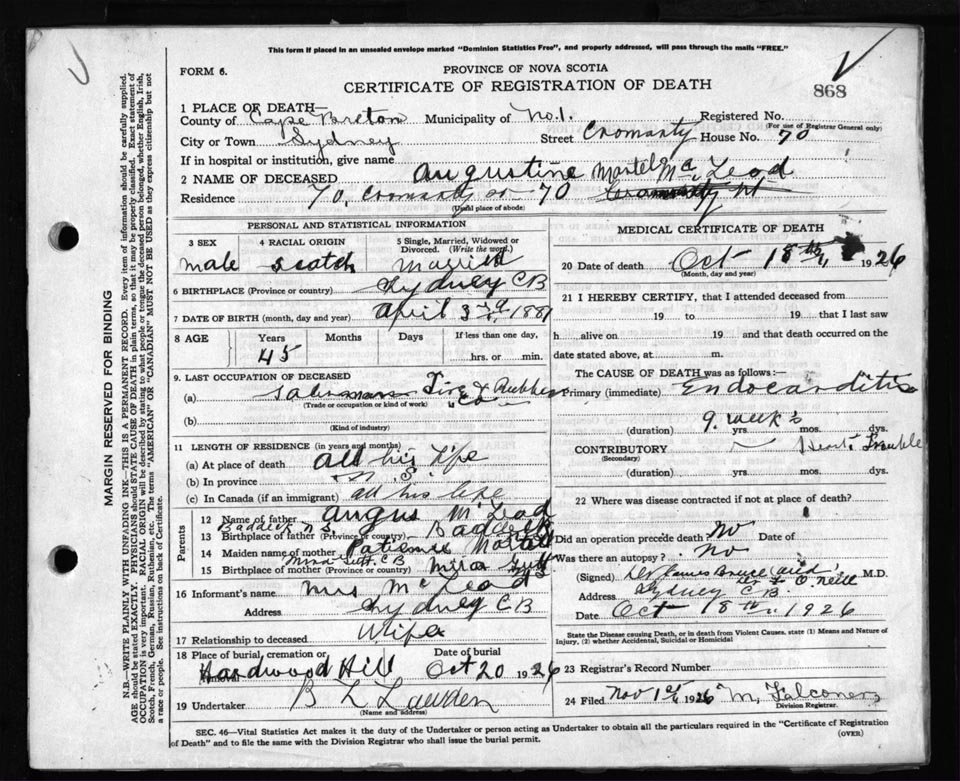 This form if placed in an unsealed envelope marked "Dominion Statistics Free", and properly addressed, will pass through the mails "FREE."
FORM 6.
PROVINCE OF NOVA SCOTIA
CERTIFICATE OF REGISTRATION OF DEATH
868
1 PLACE OF DEATH—
County of Cape Breton Municipality of No.1. Registered No.
(For use of Registrar General only)
City or Town Sydney Street Cromarty House No. 70
If in hospital or institution, give name
2 NAME OF DECEASED Augustine Martel Mc Leod
Residence 70, Cromarty St 70
(Usual place of abode)
PERSONAL AND STATISTICAL INFORMATION
3 SEX 4 RACIAL ORIGIN 5 Single, Married, Widowed or Divorced. (Write the word.)
male Scotch Married
6 BIRTHPLACE (Province or country) Sydney CB
7 DATE OF BIRTH (month, day and year) April 3rd 1881
8 AGE Years Months Days If less than one day,
45 hrs. or min.
9. LAST OCCUPATION OF DECEASED
(a) salesman Tire & Rubber Co
(Trade or occupation or kind of work)
(b)
(Kind of industry)
11 LENGTH OF RESIDENCE (in years and months)
(a) At place of death all his life
(b) In province N.S.
(c) In Canada (if an immigrant) all his life
Parents
12 Name of father Angus Mc Leod
Baddeck N S
13 Birthplace of father (Province or country) Baddeck
14 Maiden name of mother Patience Martell
Mira Gut C.B
15 Birthplace of mother (Province or country) Mira Gutt
16 Informant's name Mrs Mc Leod
Address Sydney CB
17 Relationship to deceased Wife
18 Place of burial, cremation or removal Date of burial
Hardwood Hill Oct 20 1926
19 Undertaker B L
(Name and address)
MEDICAL CERTIFICATE OF DEATH
20 Date of death Oct 18th, 1926
(Month, day and year)
21 I HEREBY CERTIFY, that I attended deceased from
19 to 19 that I last saw
h alive on 19 and that death occurred on the
date stated above, at m.
The CAUSE OF DEATH was as follows:—
Primary (immediate) Endocarditis
9. week's
(duration) yrs. mos. dys.
CONTRIBUTORY Heart Trouble
(Secondary)
(duration) yrs. mos. dys.
22 Where was disease contracted if not at place of death?
Did an operation precede death No Date of
Was there an autopsy? No
(Signed) Dr James Bruce M.D.
O'Neill
Address Sydney C B
Date Oct 18th, 1926
State the Disease causing Death, or in death from Violent Causes, state (1) Means and Nature of Injury, (2) whether Accidental, Suicidal or Homicidal
23 Registrar's Record Number
24 Filed Nov 1st 1926 M, Falconer
Division Registrar.
SEC. 46—Vital Statistics Act makes it the duty of the Undertaker or person acting as Undertaker to obtain all the particulars required in the "Certificate of Registration
of Death" and to file the same with the Division Registrar who shall issue the burial permit.
(OVER)
MARGIN RESERVED FOR BINDING
N.B.—WRITE PLAINLY WITH UNFADING INK—THIS IS A PERMANENT RECORD. Every item of information should be carefully supplied.
AGE should be stated EXACTLY. PHYSICIANS should STATE CAUSE OF DEATH in plain terms, so that it may be properly classified. Exact statement of
OCCUPATION is very important. RACIAL ORIGIN will be described by stating to what people or tongue the deceased person belonged, whether English, Irish,
Scotch, French, German, Russian, Ruthenian, etc. The terms "AMERICAN" or "CANADIAN" MUST NOT BE USED as they express citizenship but not
a race or people. See instructions on back of Certificate.